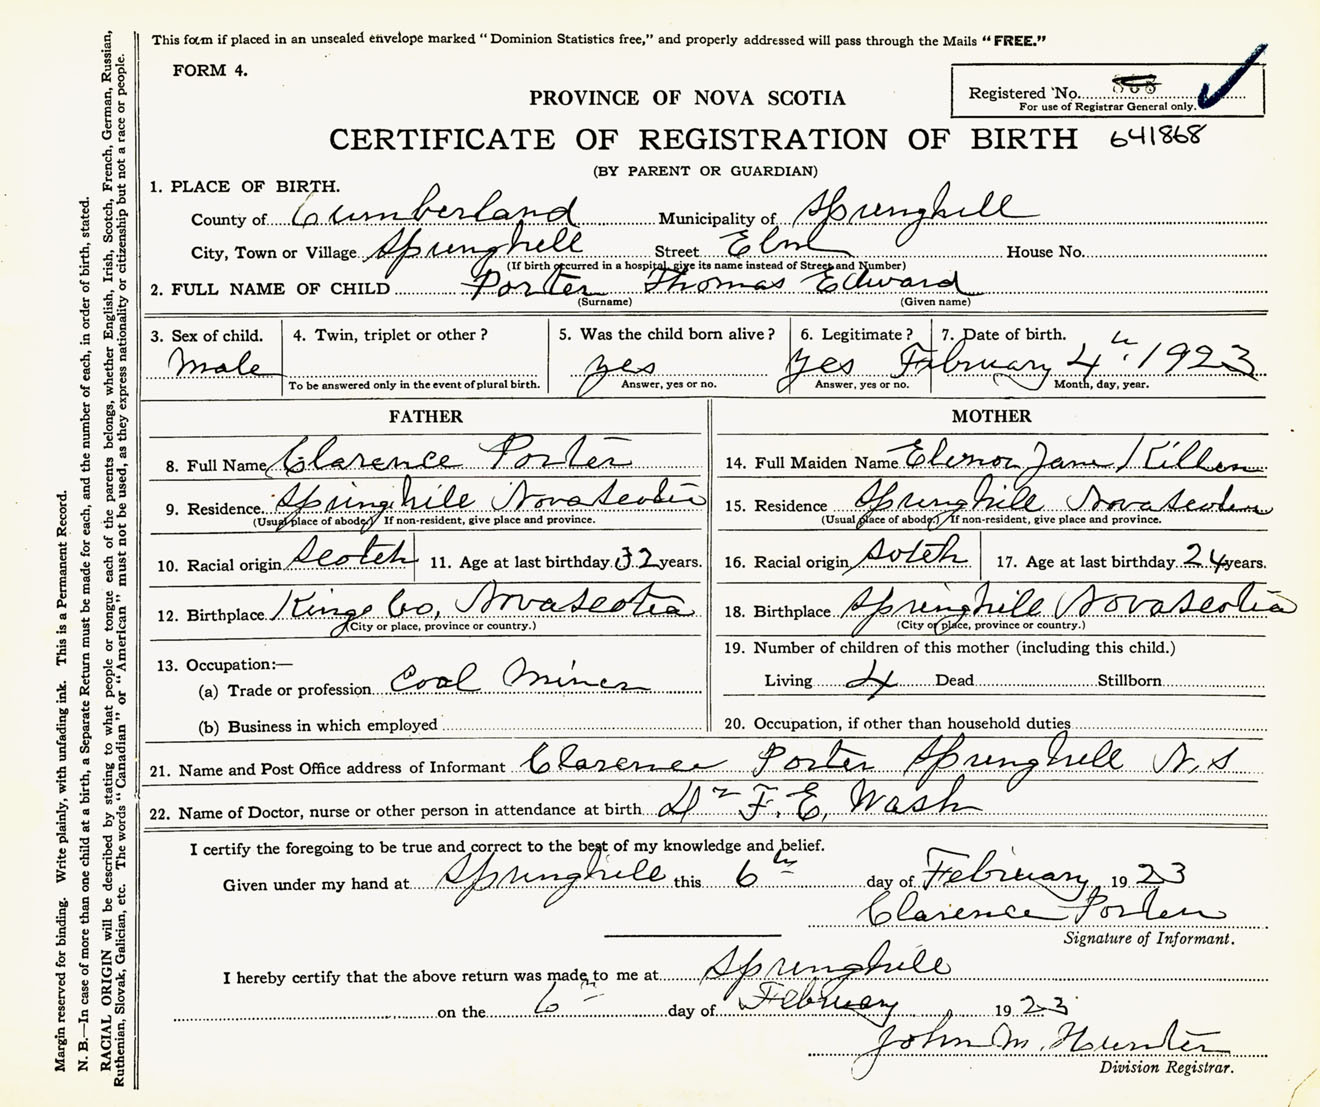 This form if placed in an unsealed envelope marked "Dominion Statistics free," and properly addressed will pass through the Mails "FREE."
FORM 4.
Registered No.
For use of Registrar General only.
PROVINCE OF NOVA SCOTIA
CERTIFICATE OF REGISTRATION OF BIRTH 641868
(BY PARENT OR GUARDIAN)
1. PLACE OF BIRTH.
County of Cumberland Municipality of Springhill
City, Town or Village Springhill Street Elm House No.
(If birth occurred in a hospital, give its name instead of Street and Number)
2. FULL NAME OF CHILD Porter Thomas Edward
(Surname) (Given name)
3. Sex of child. 4. Twin, triplet or other? 5. Was the child born alive? 6. Legitimate? 7. Date of birth.
Male yes yes February 4th. 1923
To be answered only in the event of plural birth. Answer, yes or no. Answer, yes or no. Month, day, year.
FATHER MOTHER
8. Full Name Clarence Porter 14. Full Maiden Name Elenor Jane Killen
9. Residence. Springhill Nova Scotia 15. Residence Springhill Nova Scotia
(Usual place of abode.) If non-resident, give place and province. (Usual place of abode.) If non-resident, give place and province.
10. Racial origin Scotch 11. Age at last birthday 32 years. 16. Racial origin Sotch 17. Age at last birthday 24 years.
12. Birthplace Kings Co, Nova Scotia 18. Birthplace Springhill Nova Scotia
(City or place, province or country.) (City or place, province or country.)
13. Occupation:— 19. Number of children of this mother (including this child.)
(a) Trade or profession Coal Miner Living 4 Dead Stillborn
(b) Business in which employed 20. Occupation, if other than household duties
21. Name and Post Office address of Informant Clarence Porter Springhill N.S
22. Name of Doctor, nurse or other person in attendance at birth Dr F. E. Wash
I certify the foregoing to be true and correct to the best of my knowledge and belief.
Given under my hand at Springhill this 6th day of February 1923
Clarence Porter
Signature of Informant.
I hereby certify that the above return was made to me at Springhill
on the 6th day of February 1923
John M. Hunter
Division Registrar.
Margin reserved for binding. Write plainly, with unfading ink. This is a Permanent Record.
N. B.—In case of more than one child at a birth, a Separate Return must be made for each, and the number of each, in order of birth, stated.
RACIAL ORIGIN will be described by stating to what people or tongue each of the parents belongs, whether English, Irish, Scotch, French, German, Russian,
Ruthenian, Slovak, Galician, etc. The words "Canadian" or "American" must not be used, as they express nationality or citizenship but not a race or people.